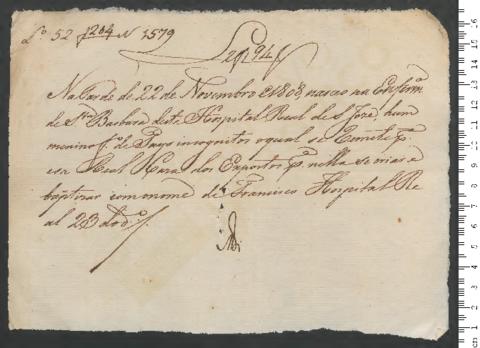 Lº 52 f 204 N 1579
Na Tarde de 22 de Novembro de 1808, nasceo na Enferm.ª
de S.ta Barbara deste Hospital Real de S. Joze, hum
menino f.º de Pays incognitos o qual se Remete p.ª
esa Real Caza dos Expostos p.ª nella se criar e
baptizar com o nome de Francisco Hospital Re
al 23 do d.º